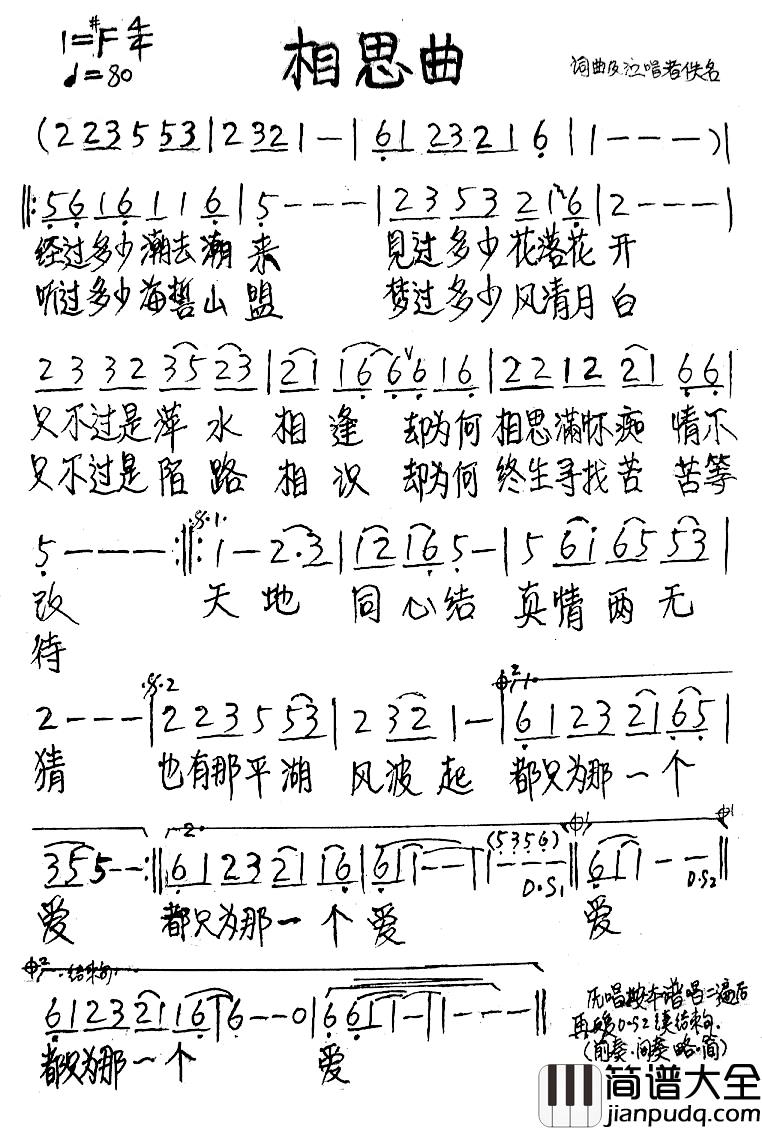 1=#F 4/4
♩=80
相思曲
词曲及泣唱者佚名
(2 2 3 5 5 3 | 2 3 2 1 — | 6 1 2 3 2 1 6 | 1 — — — ) |
‖: 5 6 1 6 1 1 6 | 5 — — — | 2 3 5 3 2 1 6 | 2 — — — |
经过多少潮去潮来 见过多少花落花开
听过多少海誓山盟 梦过多少风清月白
2 3 3 2 3 5 2 3 | 2 1 1 6 6 6 1 6 | 2 2 1 2 2 1 6 6 |
只不过是萍水相逢 却为何相思满怀痴情不
只不过是陌路相识 却为何终生寻找苦苦等
5 — — — :‖: 1 — 2 . 3 | 1 2 1 6 5 — | 5 6 1 6 5 5 3 |
改 天地同心结 真情两无
待
2 — — — | 2 2 3 5 5 3 | 2 3 2 1 — | 6 1 2 3 2 1 6 5 |
猜 也有那平湖风波起 都只为那一个
3 5 5 — — :‖ 6 1 2 3 2 1 1 6 | 6 1 1 — — | — (5 3 5 6) D.S1 ‖ 6 1 1 — — D.S2 ‖
爱 都只为那一个爱 爱
结束句
6 1 2 3 2 1 1 6 6 — — 0 | 6 6 1 1 — | 1 — — — ‖
都只为那一个 爱
原唱按本谱唱二遍后
再D.S2接结束句.
(前奏.间奏略.简)
简谱大全
jianpudq.com